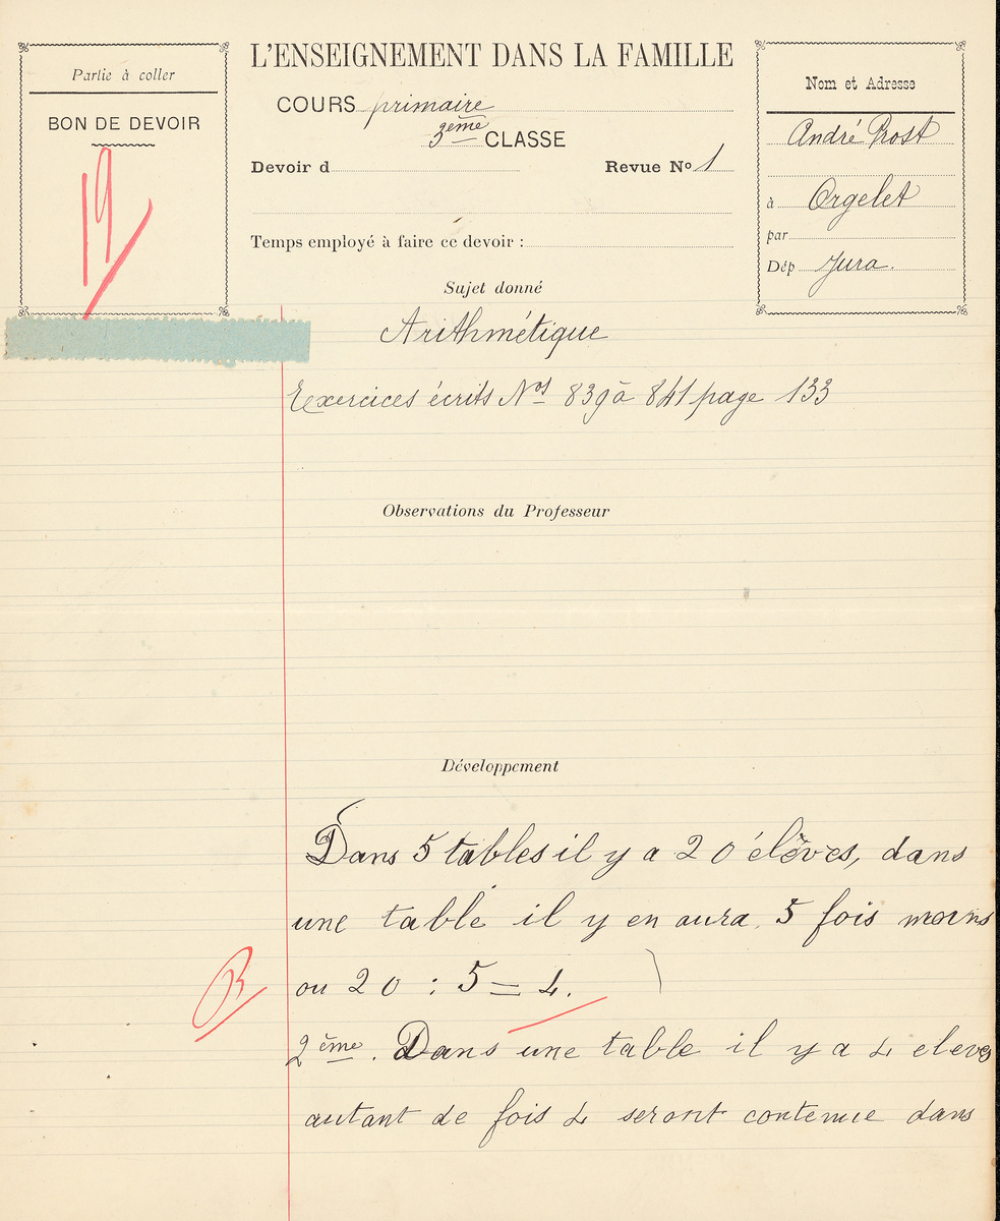 Partie à coller
BON DE DEVOIR
19
L'ENSEIGNEMENT DANS LA FAMILLE
COURS primaire
3ème CLASSE
Devoir d
Revue Nº 1
Temps employé à faire ce devoir :
Nom et Adresse
André Prost
à Orgelet
par
Dép Jura.
Sujet donné
Arithmétique
Exercices écrits Nos 839 à 841 page 133
Observations du Professeur
Développement
Dans 5 tables il y a 20 élèves, dans
une table il y en aura 5 fois moins
ou 20 : 5 = 4.
2ème. Dans une table il y a 4 eleves
autant de fois 4 seront contenue dans